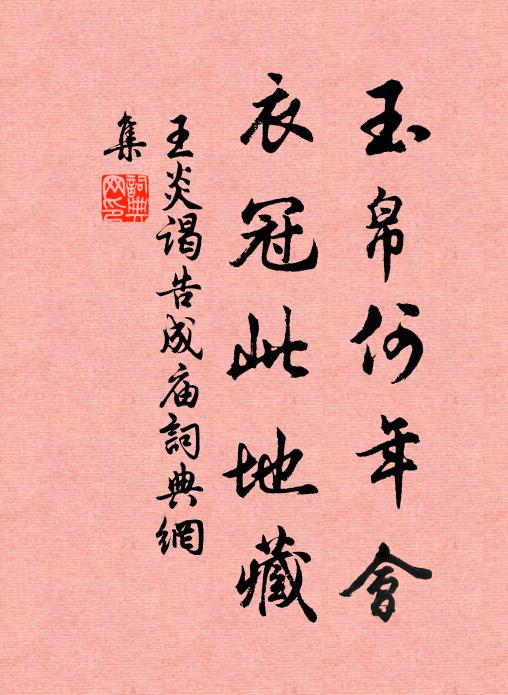 玉帛何年會
衣冠此地藏
王炎谒告成庙詞典網
集
詞典網印